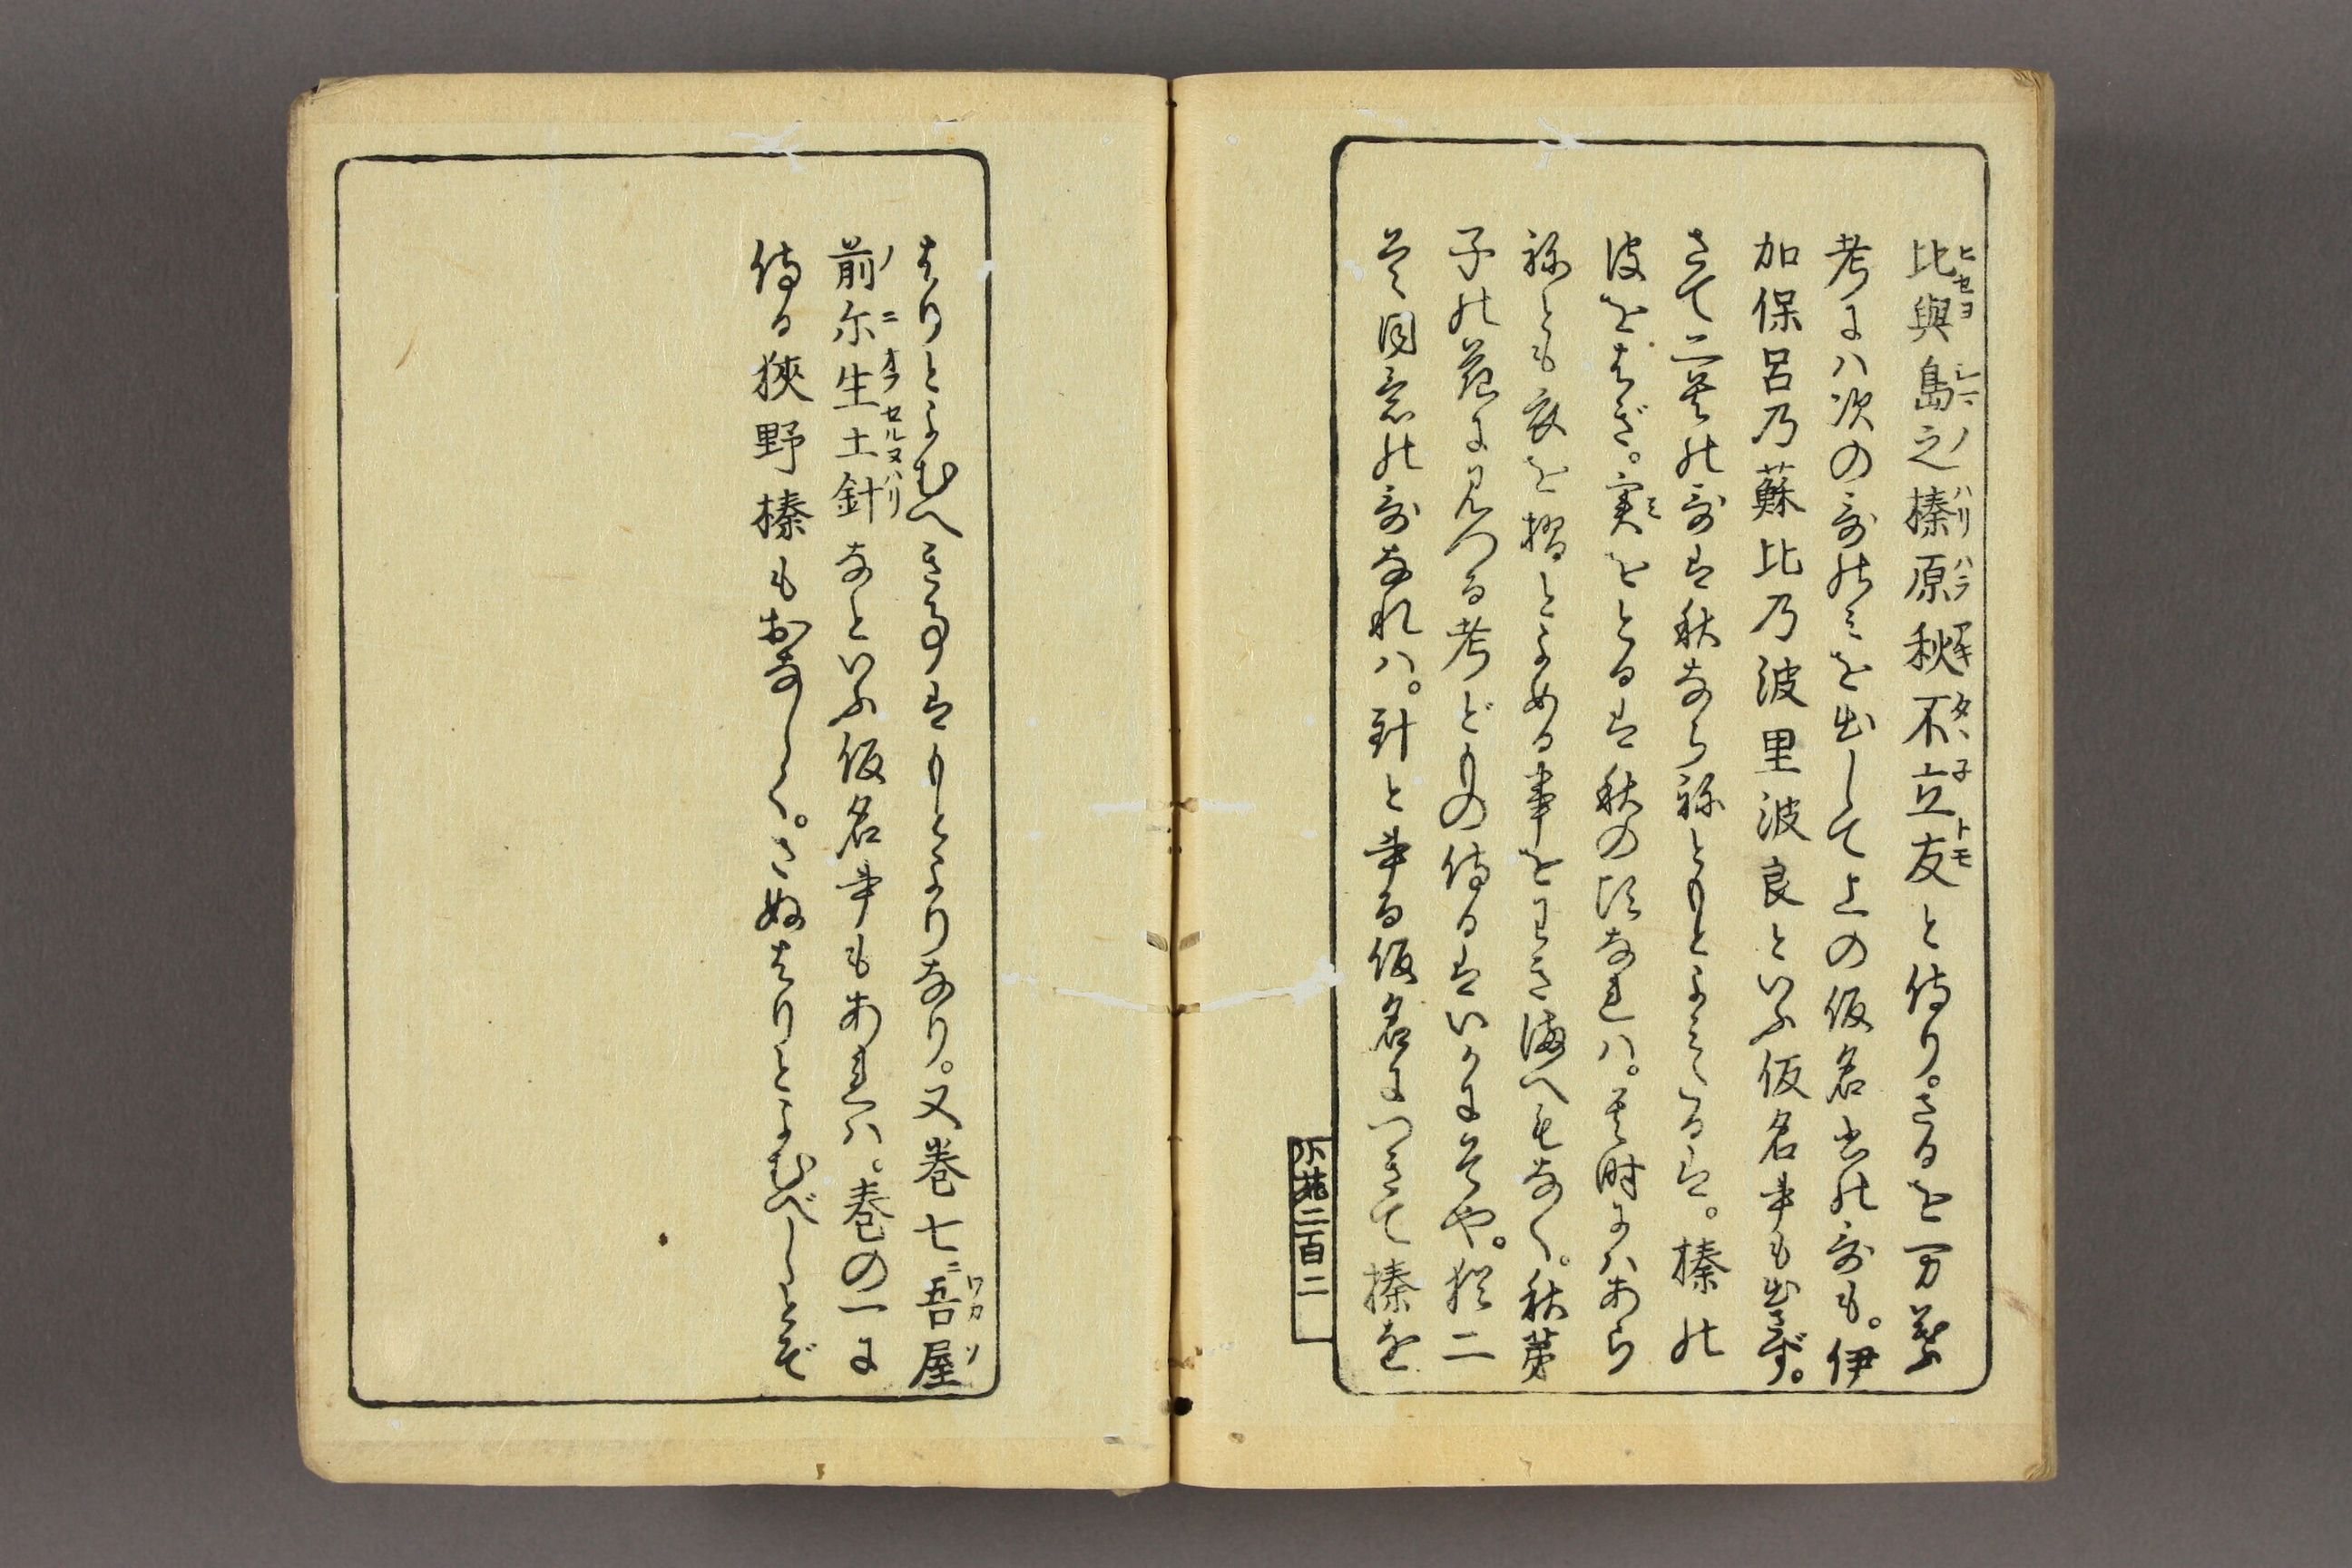 比與島之榛原秋不立友と侍り。さるを万葉
考にハ次の哥のミを出して上の仮名書の哥も。伊
加保呂乃蘇比乃波里波良といふ仮名書も出さず。
さて二首の哥は秋ならねともとよミたるは。榛の
皮をはぎ。実をとるは秋の比なれハ。其時にハあら
ねとも衣を摺とよめる事をわきまへもなく。秋芽
子の花に見つる考どもの侍るはいかにそや。猶二
首同意の哥なれハ。針と書る仮名につきて榛を
はりとよむへき事はもとよりなり。又巻七ニ吾屋
前尓生土針なといふ仮名書もあれハ。巻の一に
侍る狭野榛もおなしく。さぬはりとよむべしとぞ